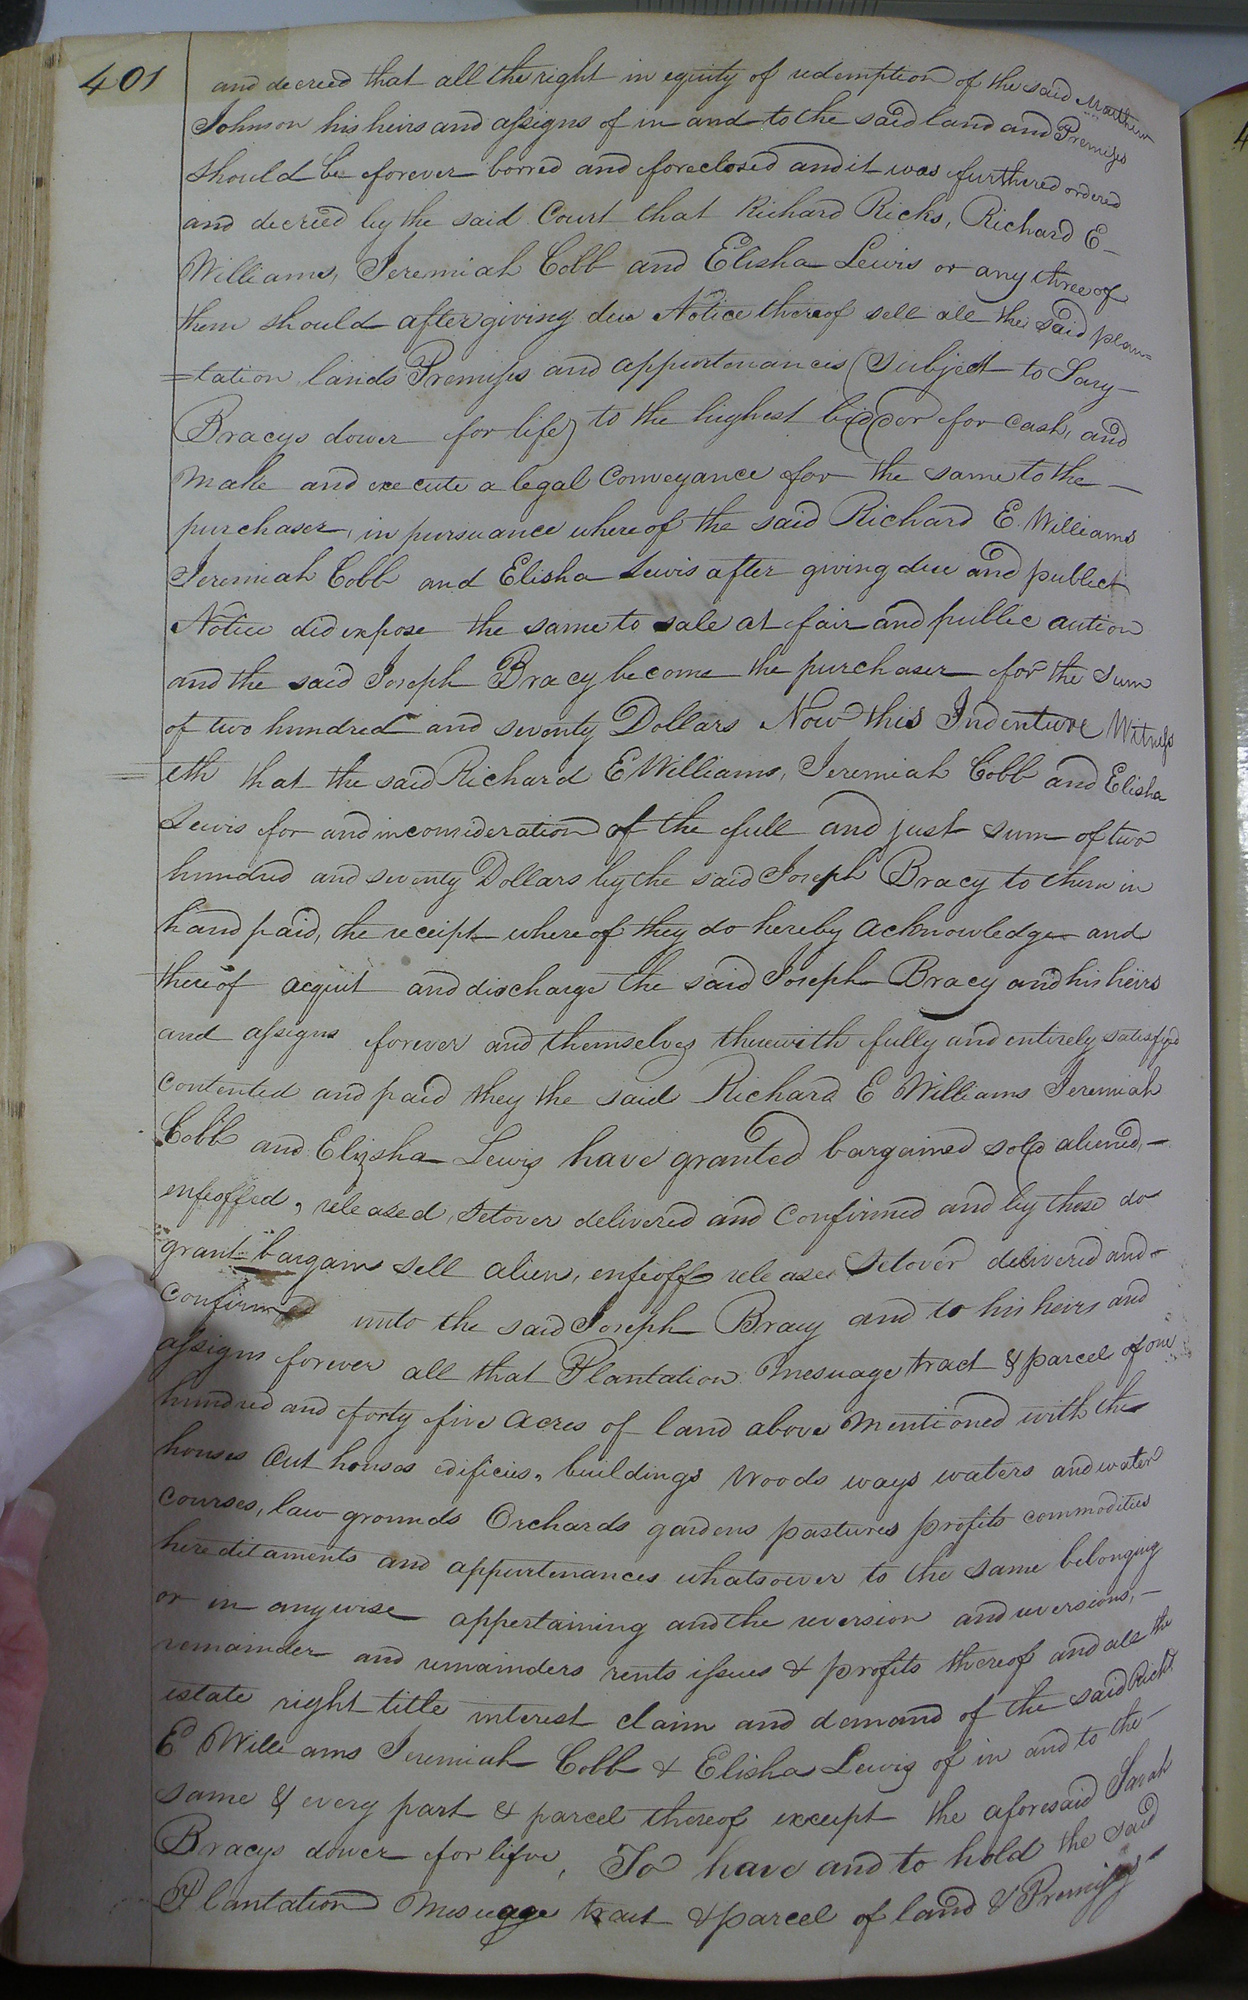 401
and decreed that all the right in equity of redemption of the said Matthew
Johnson his heirs and assigns of in and to the said land and Premises
should be forever borred and foreclosed and it was furthered ordered
and decried by the said Court that Richard Ricks, Richard E
Williams, Jeremiah Cobb and Elisha Lewis or any three of
them should after giving due Notice thereof sell all the said plan=
=tation lands Premises and appurtenances (Subject to Sary
Bracys dower for life) to the highest bidder for cash, and
make and execute a legal Conveyance for the same to the
purchaser, in pursuance whereof the said Richard E. Williams
Jeremiah Cobb and Elisha Lewis after giving due and publick
Notice did expose the same to sale at fair and public aution
and the said Joseph Bracy become the purchaser for the sum
of two hundred and seventy Dollars Now this Indenture Witness
eth that the said Richard E Williams, Jeremiah Cobb and Elisha
Lewis for and inconsideration of the full and just sum of two
hundred and seventy Dollars by the said Joseph Bracy to them in
hand paid, the receipt whereof they do hereby acknowledge and
thereof acquit and discharge the said Joseph Bracy and his heirs
and assigns forever and themselves therewith fully and entirely satisfyed
contented and paid they the said Richard E Williams Jeremiah
Cobb and Elizsha Lewis have granted bargained sold aliened,
enfeoffed, released, setover delivered and confirmed and by these do
grant bargain sell alien, enfeoff release setover delivered and
confirmed unto the said Joseph Bracy and to his heirs and
assigns forever all that Plantation Mesuage tract & parcel of one
hundred and forty five acres of land above mentioned with the
houses Out houses edificies, buildings woods ways waters and water
courses, law grounds Orchards gardens pastures profits commodities
hereditaments and appurtenances whatsoever to the same belonging
or in anywise appertaining and the reversion and reversions,
remainder and remainders rents issues & profits thereof and all the
estate right title interest claim and demand of the said Richd
E Williams Jeremiah Cobb & Elisha Lewis of in and to the
same & every part & parcel thereof except the aforesaid Sarah
Bracys dower for lifve, To have and to hold the said
Plantation Mesuage tract & parcel of land & Premises